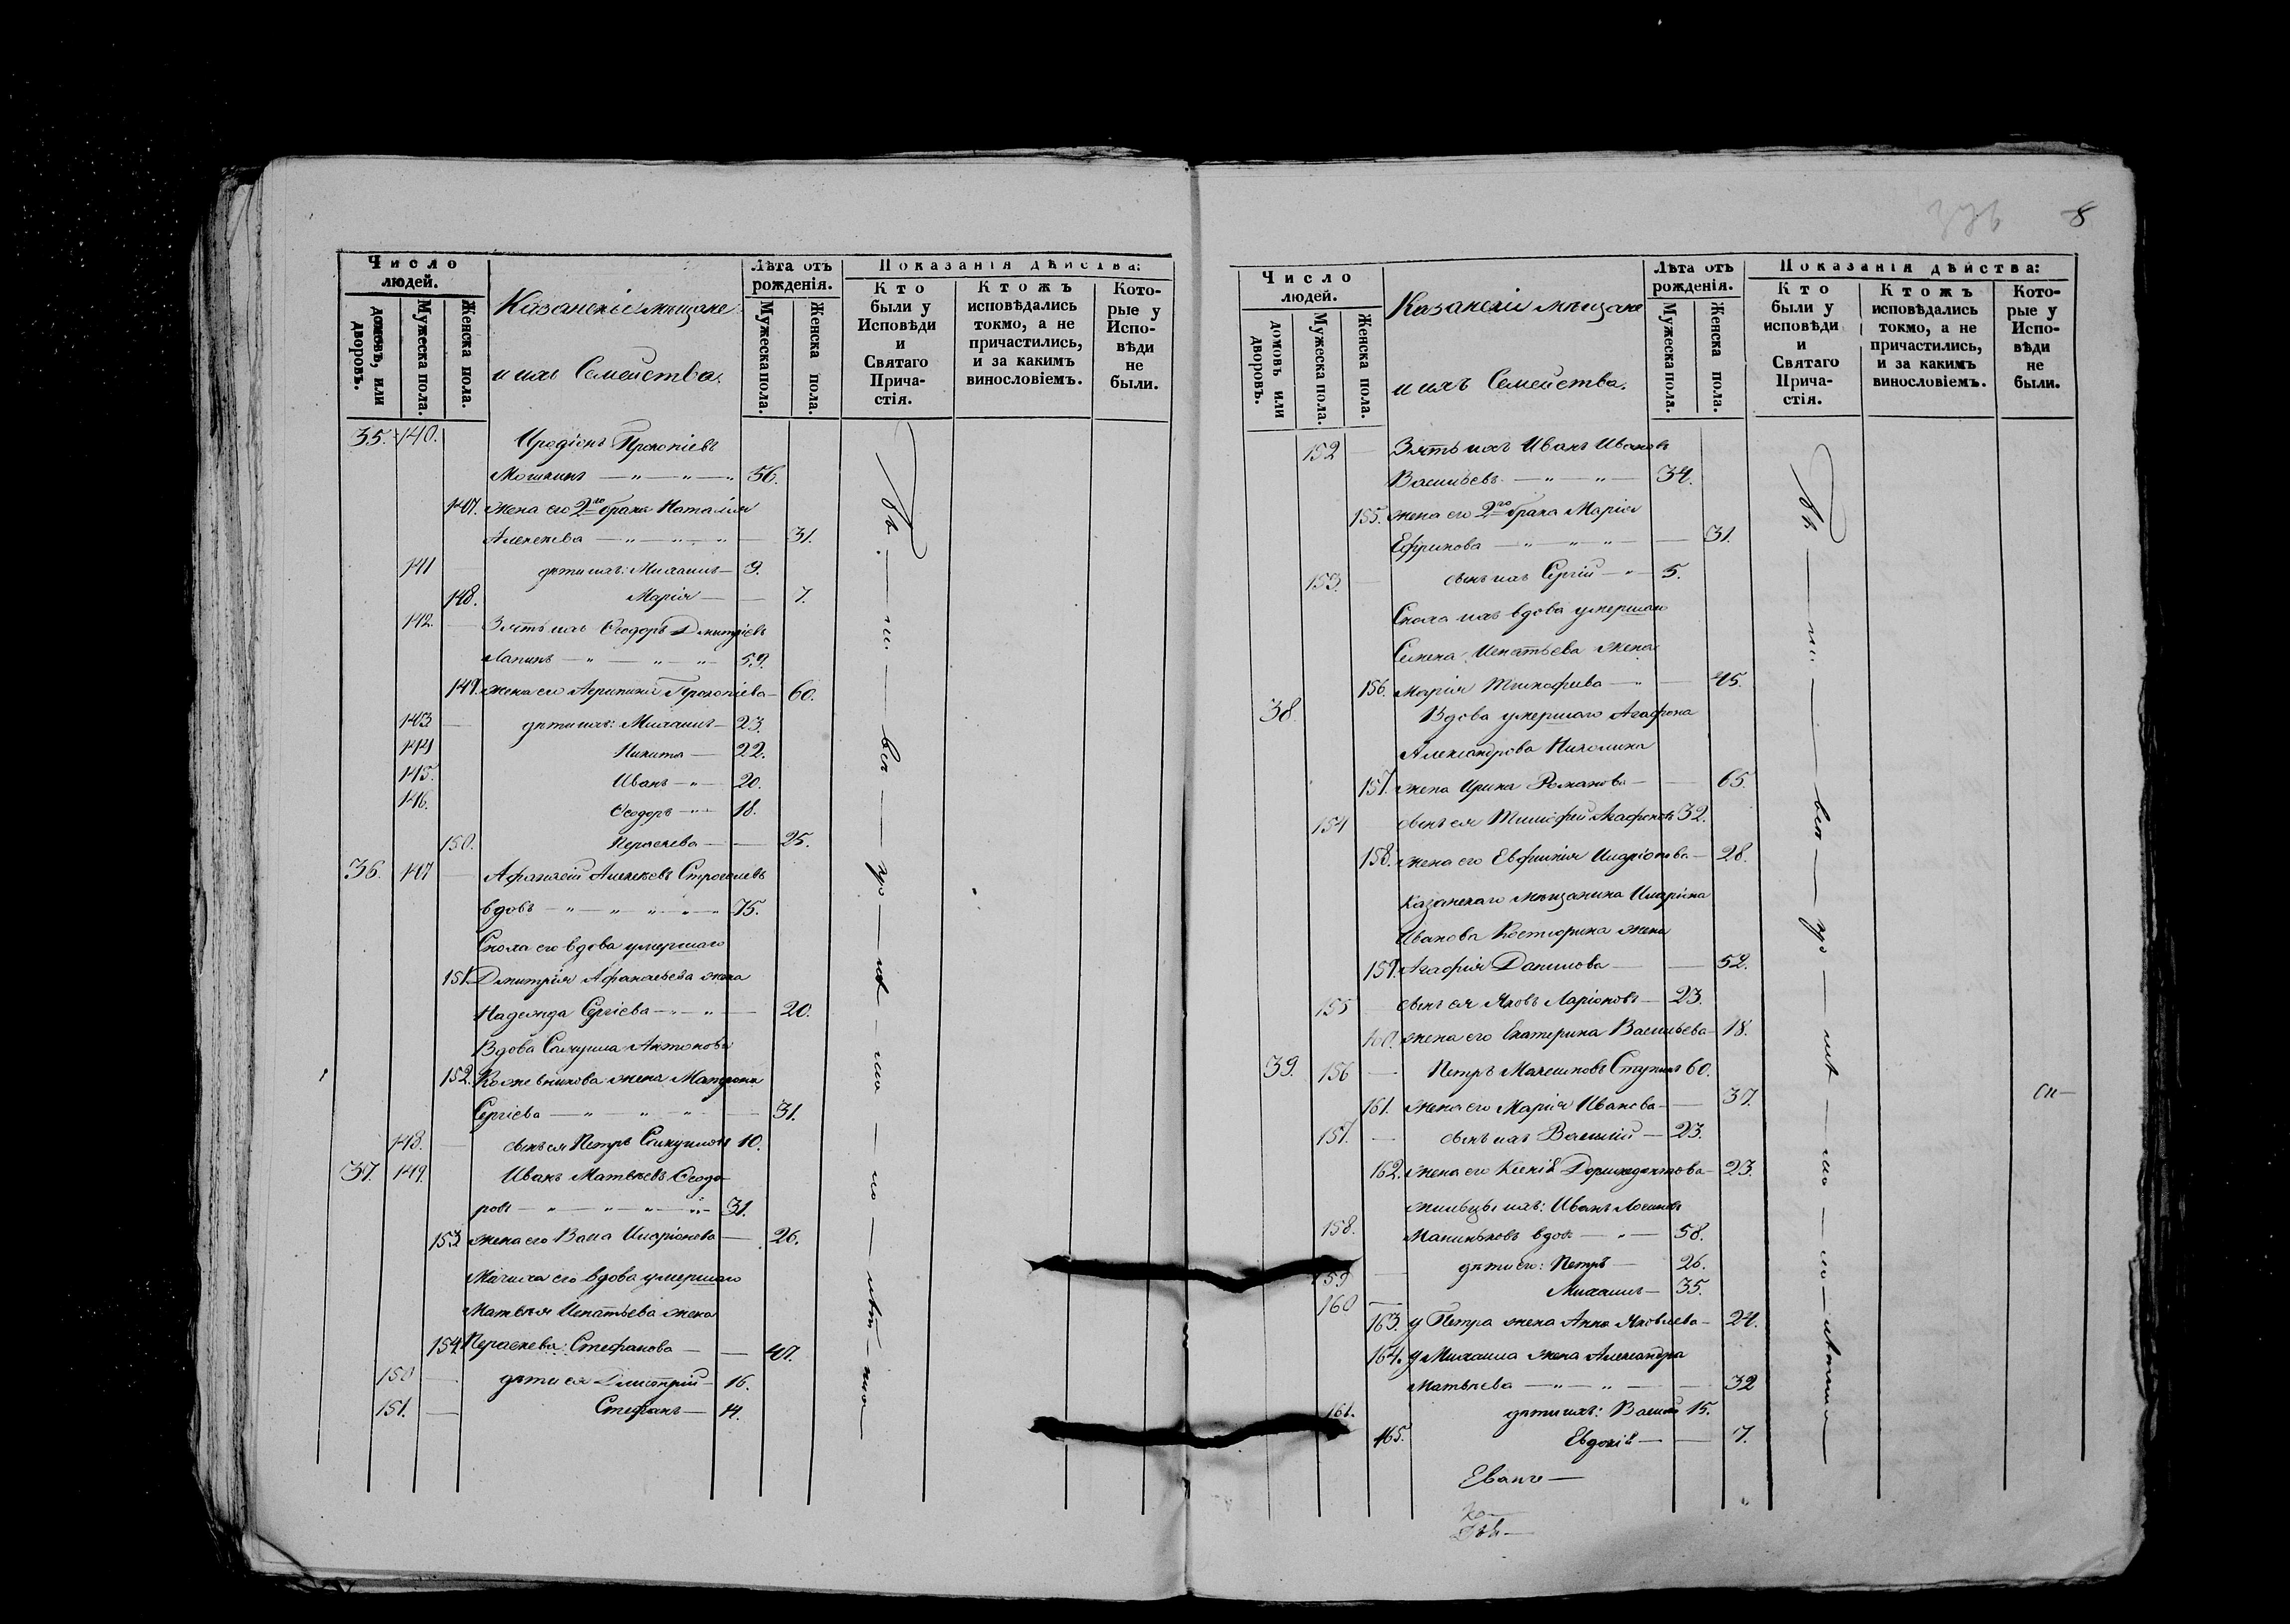 Число людей.
домовъ, или дворовъ.
Мужеска пола.
Женска пола.
Казанскіе мѣщане
и ихъ Семейства.
Лѣта отъ рожденія.
Мужеска пола.
Женска пола.
Показанія дѣйства:
Кто были у Исповѣди и Святаго Причастія.
Ктожъ исповѣдались токмо, а не причастились, и за какимъ винословіемъ.
Которые у Исповѣди не были.
35. 140. Иродіонъ Прокопіевъ
Мошкинъ — „ — „ — „ 56.
147. жена его 2го брака Наталія
Алексѣева — „ — „ — „ — 31.
141 — дѣти ихъ: Михаилъ — 9.
148. Марія — — 7.
142. — Зять ихъ Ѳеодоръ Дмитріевъ
Лапинъ — „ — „ — „ — 59.
149. жена его Агрипина Прокопіева — 60.
143 — дѣти ихъ: Михаилъ — 23.
144 Никита — 22.
145. Иванъ — „ — 20.
146. Ѳеодоръ — „ — 18.
150. Параскева — — 25.
36. 147 — Афанасій Алексѣевъ Строгалевъ
вдовъ — „ — „ — „ — „ — „ 75.
Сноха его вдова умершаго
151. Дмитрія Афанасьева жена
Надежда Сергіева — „ — „ — 20.
Вдова Самуила Антонова
152. Кожевникова жена Матрона
Сергіева — „ — „ — „ — 31.
148. — сынъ ея Петръ Самуиловъ 10.
37. 149. Иванъ Матвѣевъ Ѳеодо-
ровъ — „ — „ — „ — „ — 31.
153. жена его Васса Иларіонова — 26.
Мачиха его вдова умершаго
Матвѣя Игнатьева жена
154 Параскева Стефанова — — 47.
150 — дѣти ея Дмитрій — 16.
151. — Стефанъ — 14.
8
Число людей.
домовъ или дворовъ.
Мужеска пола.
Женска пола.
Казанскіе мѣщане
и ихъ Семейства.
Лѣта отъ рожденія.
Мужеска пола.
Женска пола.
Показанія дѣйства:
Кто были у исповѣди и Святаго Причастія.
Ктожъ исповѣдались токмо, а не причастились, и за какимъ винословіемъ.
Которые у Исповѣди не были.
152 — Зять ихъ Иванъ Ивановъ
Васильевъ — „ — „ — 34.
155. жена его 2го брака Марія
Ефимова — „ — „ — „ — 31.
153. — сынъ ихъ Сергій — „ — 5.
Сноха ихъ вдова умершаго
Семена Игнатьева жена
156. Марія Тимофеева — „ — 45.
38. Вдова умершаго Агафона
Александрова Николина
157. жена Ирина Романова — — 65.
154 сынъ ея Тимофей Агафоновъ 32.
158. жена его Евфимія Иларіонова — 28.
Казанскаго мѣщанина Иларіона
Иванова Костюрина жена
159. Агафія Данилова — — 52.
155 — сынъ ея Яковъ Ларіоновъ — 23.
160. жена его Екатерина Васильева — 18.
39. 156 — Петръ Ступинъ 60.
161. жена его Марія Иванова — — 37.
157. — сынъ ихъ Василій — 23.
162. жена его Ксенія Доримедонтова — 23.
жильцы ихъ: Иванъ
158. вдовъ — „ — 58.
159 — дѣти его: Петръ — 26.
160 — Михаилъ — 35.
163. у Петра жена Анна Яковлева — 24.
164. у Михаила жена Александра
Матвѣева — „ — „ — 32
161. дѣти ихъ: Василій 15.
165. Евдокія — — 7.